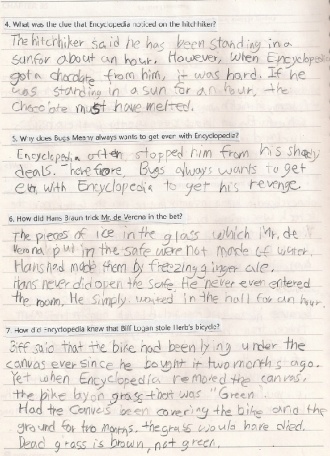 4. What was the clue that Encyclopedia noticed on the hitchhiker?
The hitchhiker said he has been standing in a
sun for about an hour. However, when Encyclopedia
got a chocolate from him, it was hard. If he
was standing in a sun for an hour, the
chocolate must have melted.
5. Why does Bugs Meany always wants to get even with Encyclopedia?
Encyclopedia often stopped him from his shady
deals. Therefore, Bugs always wants to get
even with Encyclopedia to get his revenge
6. How did Hans Braun trick Mr. de Verona in the bet?
The pieces of ice in the glass which Mr. de
Verona put in the safe were not made of water.
Hans had made them by freezing ginger ale.
Hans never did open the safe. He never even entered
the room. He simply waited in the hall for an hour.
7. How did Encyclopedia knew that Biff Logan stole Herb's bicycle?
Biff said that the bike had been lying under the
canvas ever since he bought it two months ago.
Yet when Encyclopedia removed the canvas,
the bike lay on grass that was "Green".
Had the canvas been covering the bike and the
ground for two months, the grass would have died.
Dead grass is brown, not green.